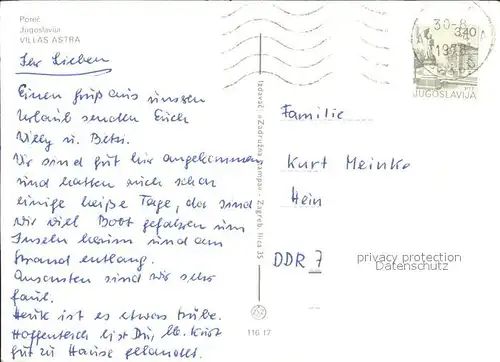 Poreč
Jugoslavija
VILLAS ASTRA
Ihr Lieben
Einen Gruß aus unserem
Urlaub senden Euch
Willy u. Betsi.
Wir sind gut hier angekommen
und hatten auch schon
einige heiße Tage, da sind
wir viel Boot gefahren um
Inseln herum und am
Strand entlang.
Ansonsten sind wir sehr
faul.
Heute ist es etwas trübe.
Hoffentlich bist Du, lb. Kurt
gut zu Hause gelandet.
Izdavač: »Zadružna štampa« - Zagreb, Ilica 35
116 17
30-8
1978
3.40
JUGOSLAVIJA
Familie
Kurt Meinke
Hein
DDR 7
privacy protection
Datenschutz